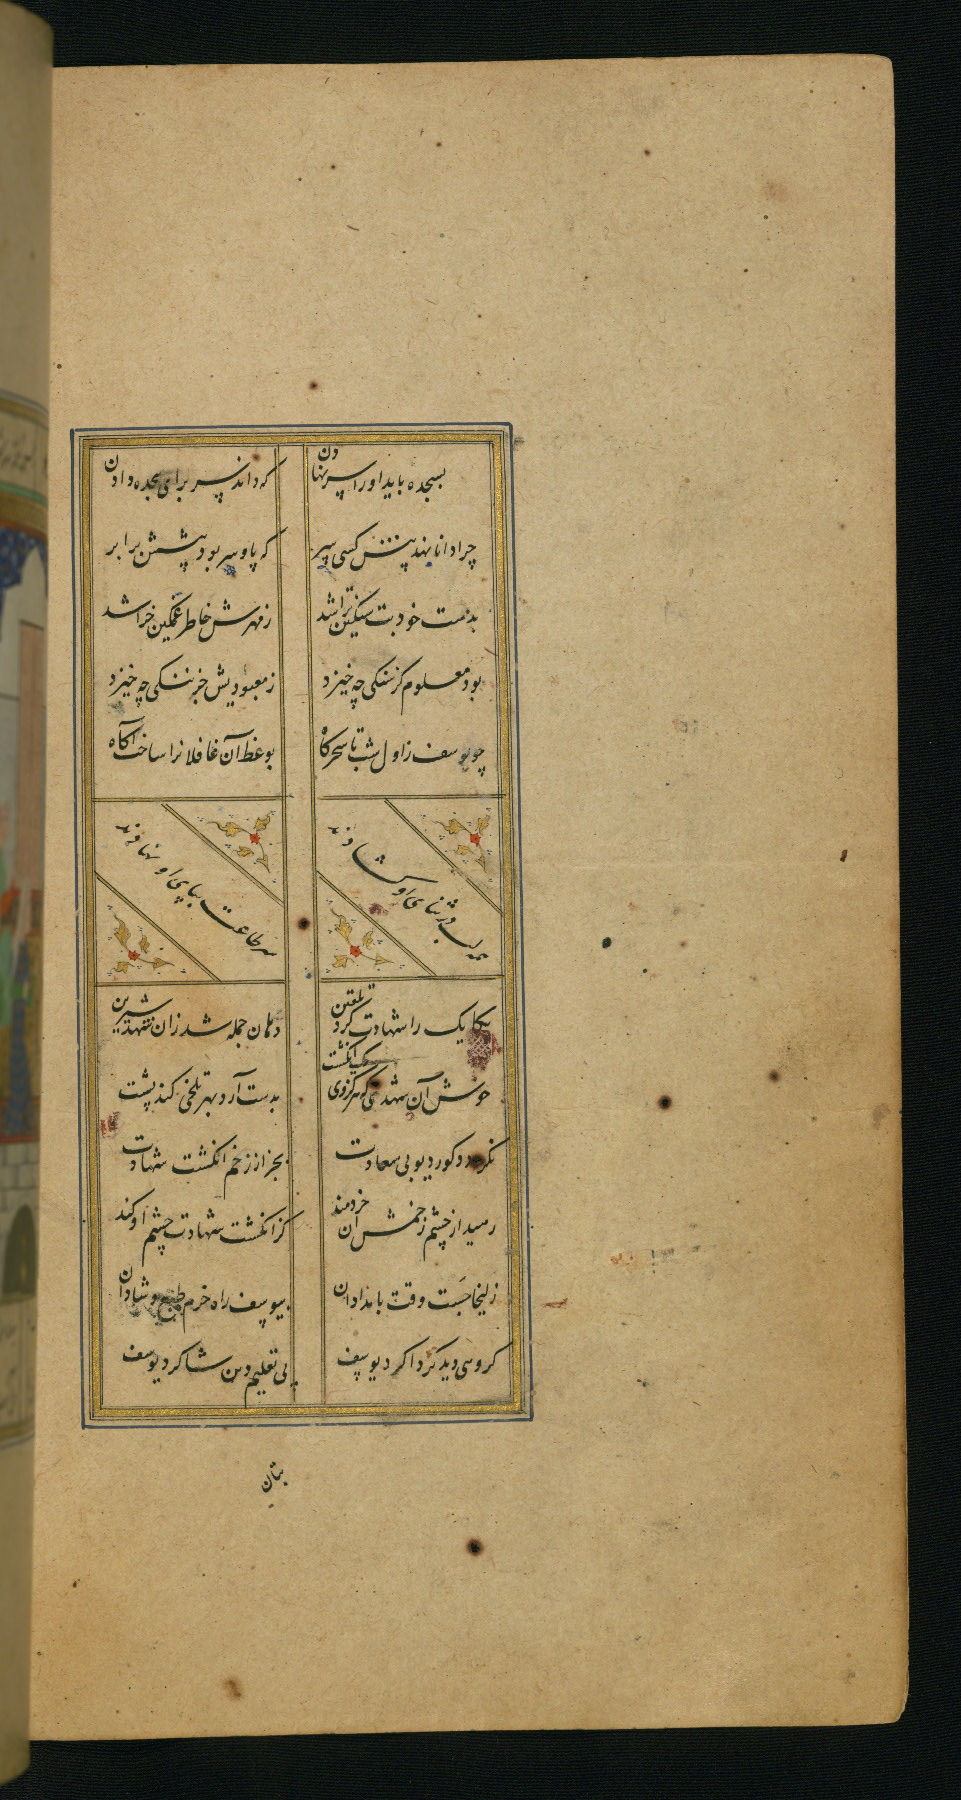 بسجده باید او را سر نهادن
که داند سر برای سجده دادن
چرا دانا نهد پیش کسی سر
که پا و سر بود پیشش برابر
بدست خود بت سنگین تراشد
ز مهرش خاطر غمگین خراشد
بود معلوم کز سنگی چه خیزد
ز معبودیش جز ننگی چه خیزد
چو یوسف ز اول شب تا سحرگاه
بوعظ آن غافلانرا ساخت آگاه
همه لب در ثنای او گشادند
سر طاعت بپای او نهادند
یکایک را شهادت کرد تلقین
دهان جمله شد زان شهد شیرین
خوش آن شهدی که هر کز وی یک انگشت
بدست آرد بهر تلخی کند پشت
نکردد کور دیو بی سعادت
بجز از زخم انگشت شهادت
رسید از چشم زخمش آن خردمند
کز انگشت شهادت چشم او کند
زلیخا جست وقت بامدادان
بیوسف راه خرم طبع و شادان
گروهی دید گرداگرد یوسف
پی تعلیم دین شاگرد یوسف
بتان